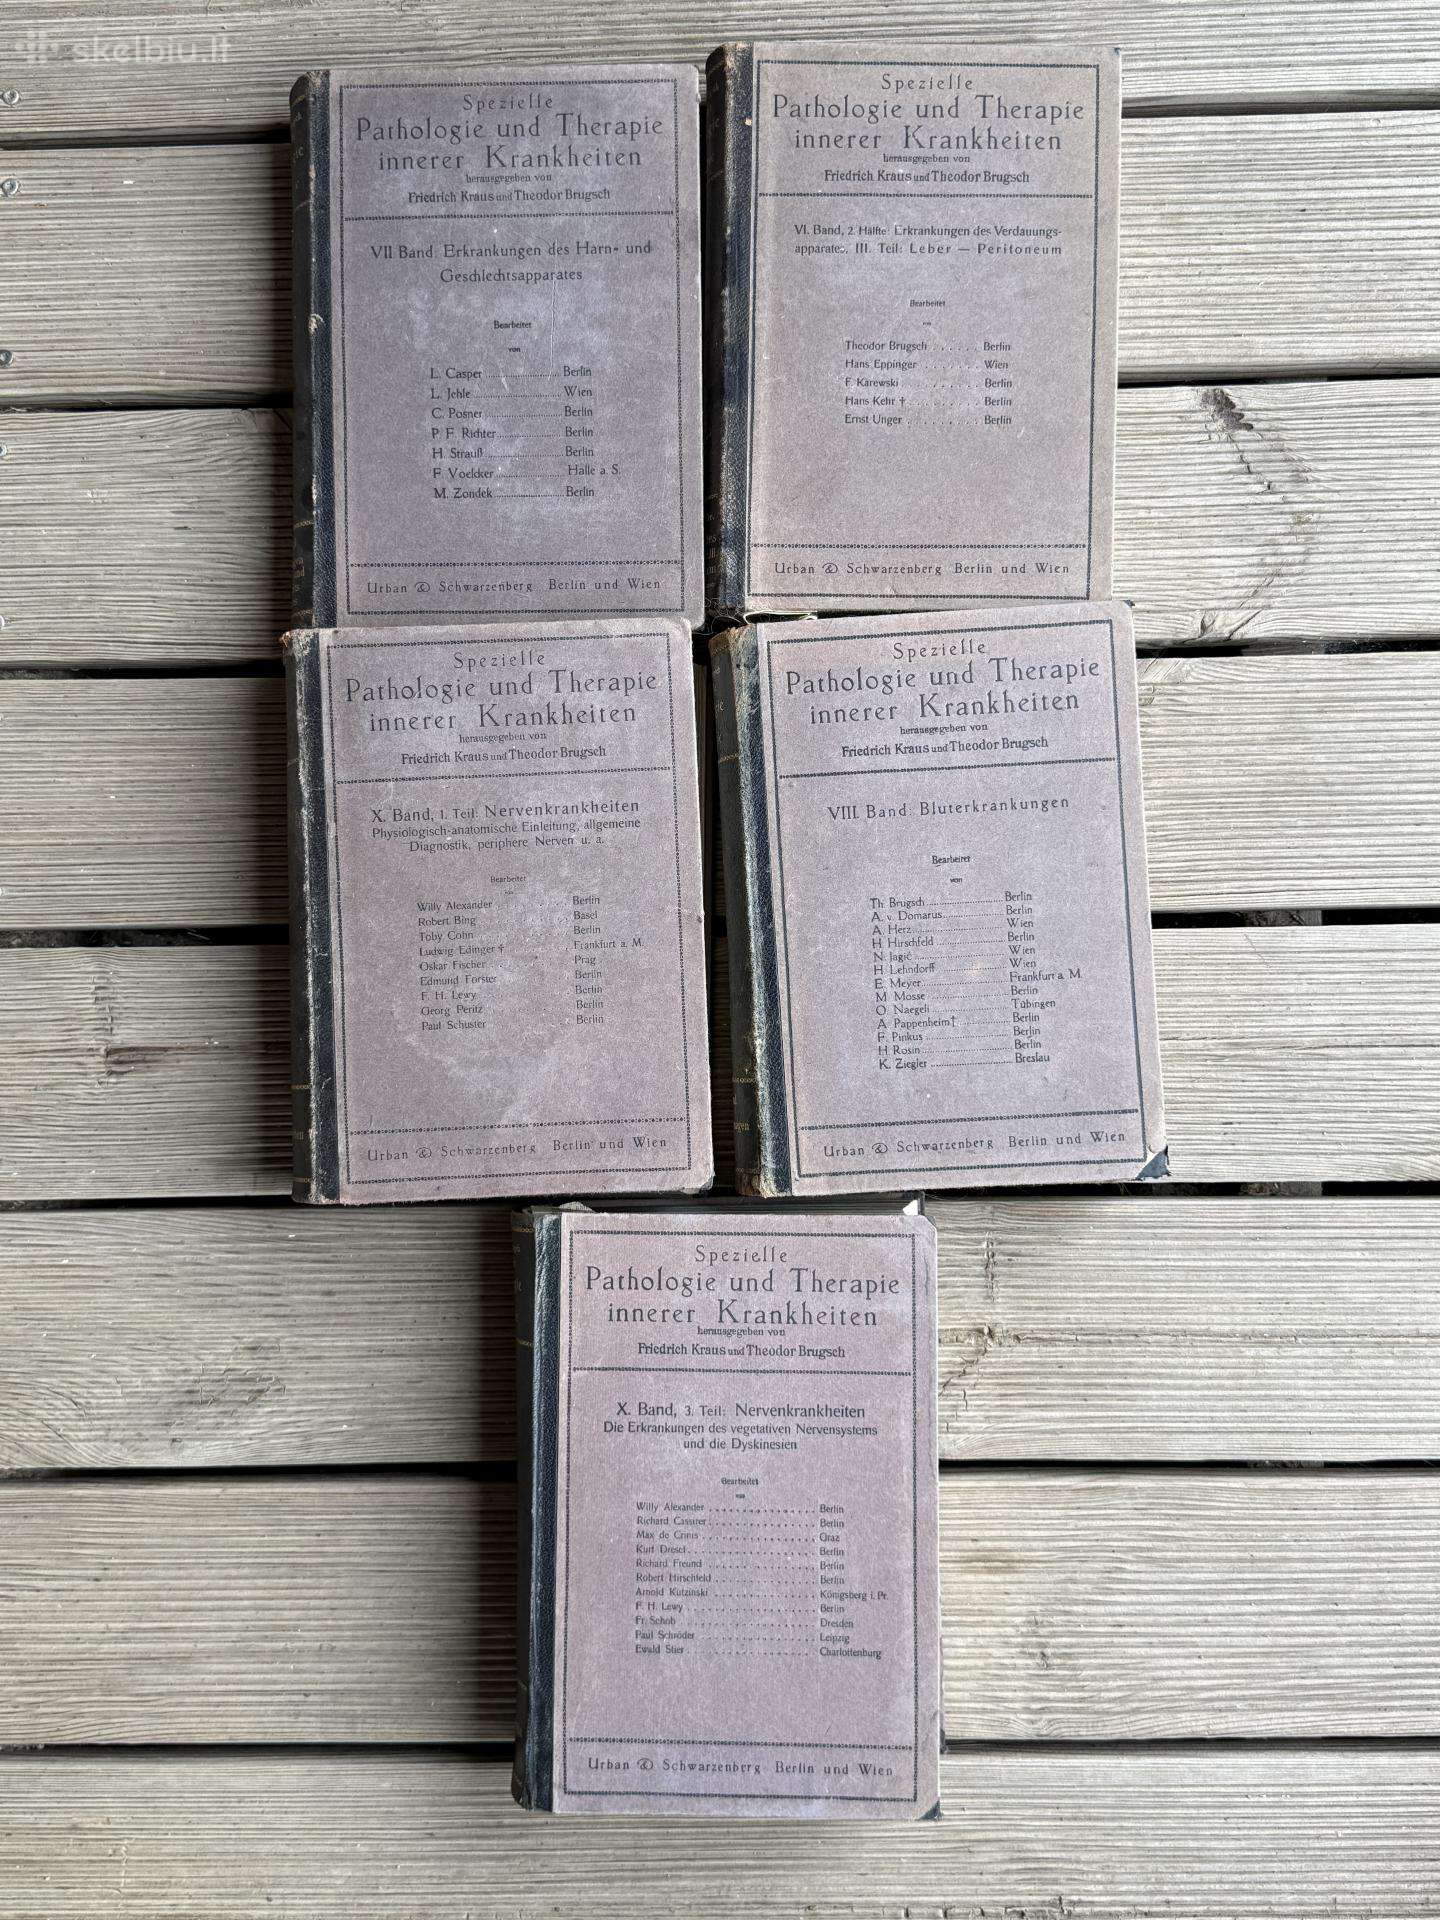 skelbiu.lt
Spezielle
Pathologie und Therapie
innerer Krankheiten
herausgegeben von
Friedrich Kraus und Theodor Brugsch
VII. Band: Erkrankungen des Harn- und
Geschlechtsapparates
Bearbeitet
von
L. Casper Berlin
L. Jehle Wien
C. Posner Berlin
P. F. Richter Berlin
H. Strauß Berlin
F. Voelcker Halle a. S.
M. Zondek Berlin
Urban & Schwarzenberg Berlin und Wien
Spezielle
Pathologie und Therapie
innerer Krankheiten
herausgegeben von
Friedrich Kraus und Theodor Brugsch
VI. Band, 2. Hälfte: Erkrankungen des Verdauungs-
apparates, III. Teil: Leber — Peritoneum
Bearbeitet
von
Theodor Brugsch Berlin
Hans Eppinger Wien
F. Karewski Berlin
Hans Kehr † Berlin
Ernst Unger Berlin
Urban & Schwarzenberg Berlin und Wien
Spezielle
Pathologie und Therapie
innerer Krankheiten
herausgegeben von
Friedrich Kraus und Theodor Brugsch
X. Band, 1. Teil: Nervenkrankheiten
Physiologisch-anatomische Einleitung, allgemeine
Diagnostik, periphere Nerven u. a.
Bearbeitet
von
Willy Alexander Berlin
Robert Bing Basel
Toby Cohn Berlin
Ludwig Edinger † Frankfurt a. M.
Oskar Fischer Prag
Edmund Forster Berlin
F. H. Lewy Berlin
Georg Peritz Berlin
Paul Schuster Berlin
Urban & Schwarzenberg Berlin und Wien
Spezielle
Pathologie und Therapie
innerer Krankheiten
herausgegeben von
Friedrich Kraus und Theodor Brugsch
VIII. Band: Bluterkrankungen
Bearbeitet
von
Th. Brugsch Berlin
A. v. Domarus Berlin
A. Herz Wien
H. Hirschfeld Berlin
N. Jagić Wien
H. Lehndorff Wien
E. Meyer Frankfurt a. M.
M. Mosse Berlin
O. Naegeli Tübingen
A. Pappenheim † Berlin
F. Pinkus Berlin
H. Rosin Berlin
K. Ziegler Breslau
Urban & Schwarzenberg Berlin und Wien
Spezielle
Pathologie und Therapie
innerer Krankheiten
herausgegeben von
Friedrich Kraus und Theodor Brugsch
X. Band, 3. Teil: Nervenkrankheiten
Die Erkrankungen des vegetativen Nervensystems
und die Dyskinesien
Bearbeitet
von
Willy Alexander Berlin
Richard Cassirer Berlin
Max de Crinis Graz
Kurt Dresel Berlin
Richard Freund Berlin
Robert Hirschfeld Berlin
Arnold Kutzinski Königsberg i. Pr.
F. H. Lewy Berlin
Fr. Schob Dresden
Paul Schröder Leipzig
Ewald Stier Charlottenburg
Urban & Schwarzenberg Berlin und Wien